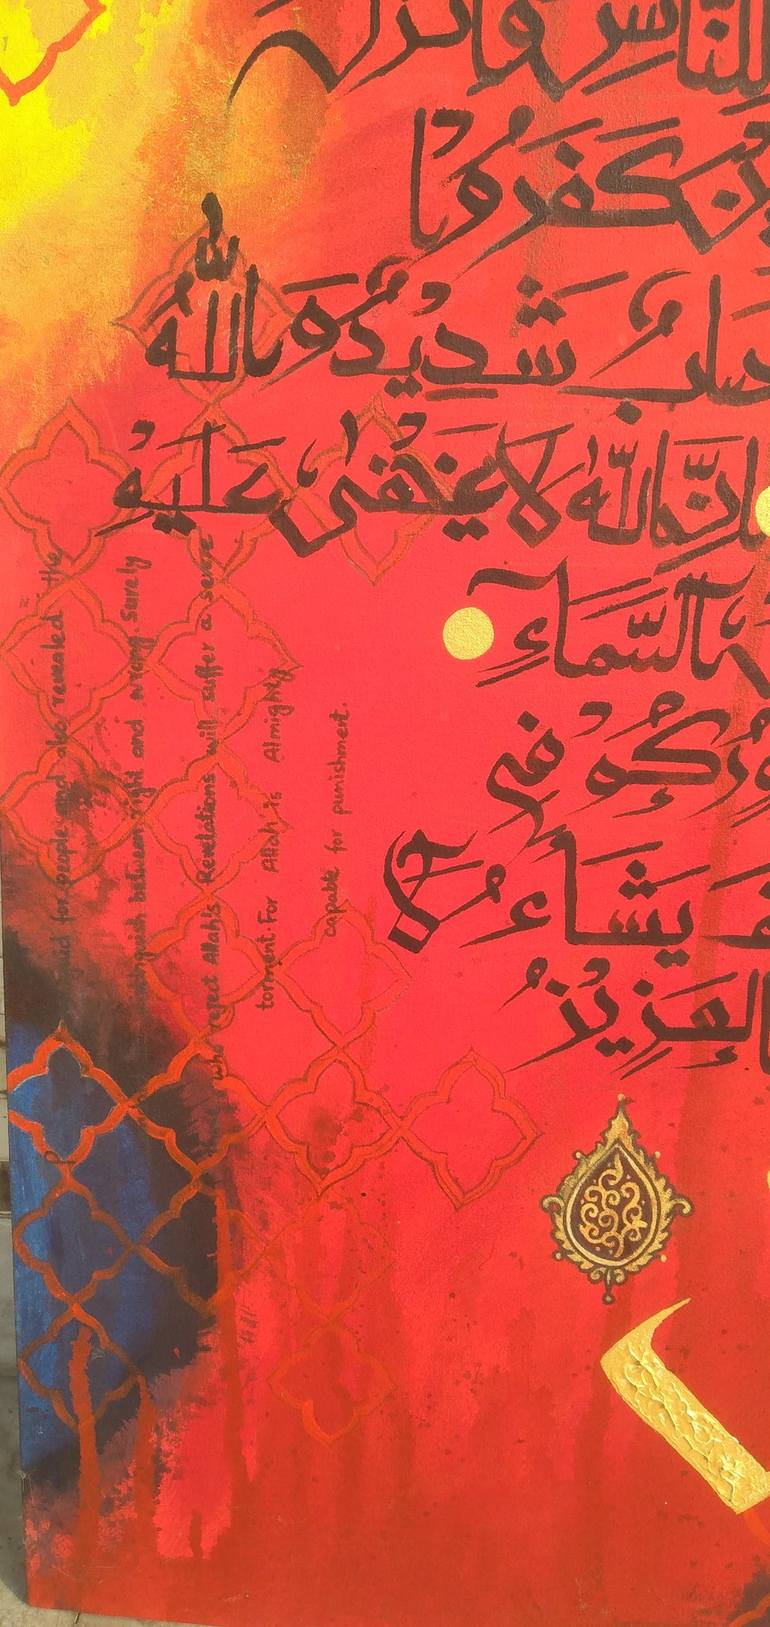 لِلنَّاسِ وَأَنزَلَ
كَفَرُوا
شَدِيدٌ وَاللَّهُ
إِنَّ اللَّهَ لَا يَخْفَىٰ عَلَيْهِ
السَّمَآءِ
فِي
يَشَآءُ لَآ
الْعَزِيزُ
for people and also revealed the
between right and wrong. Surely
who reject Allah's Revelations will suffer a severe
torment. For Allah is Almighty
capable for punishment.